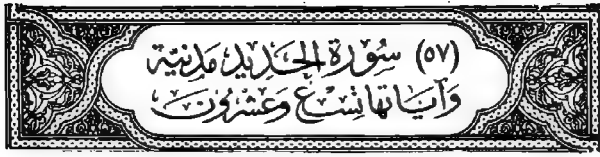 (٥٧) سُورَة الحَدِيد مَدنيَّة
وَآيَاتهَا تِسْعٌ وَعِشْرُونَ